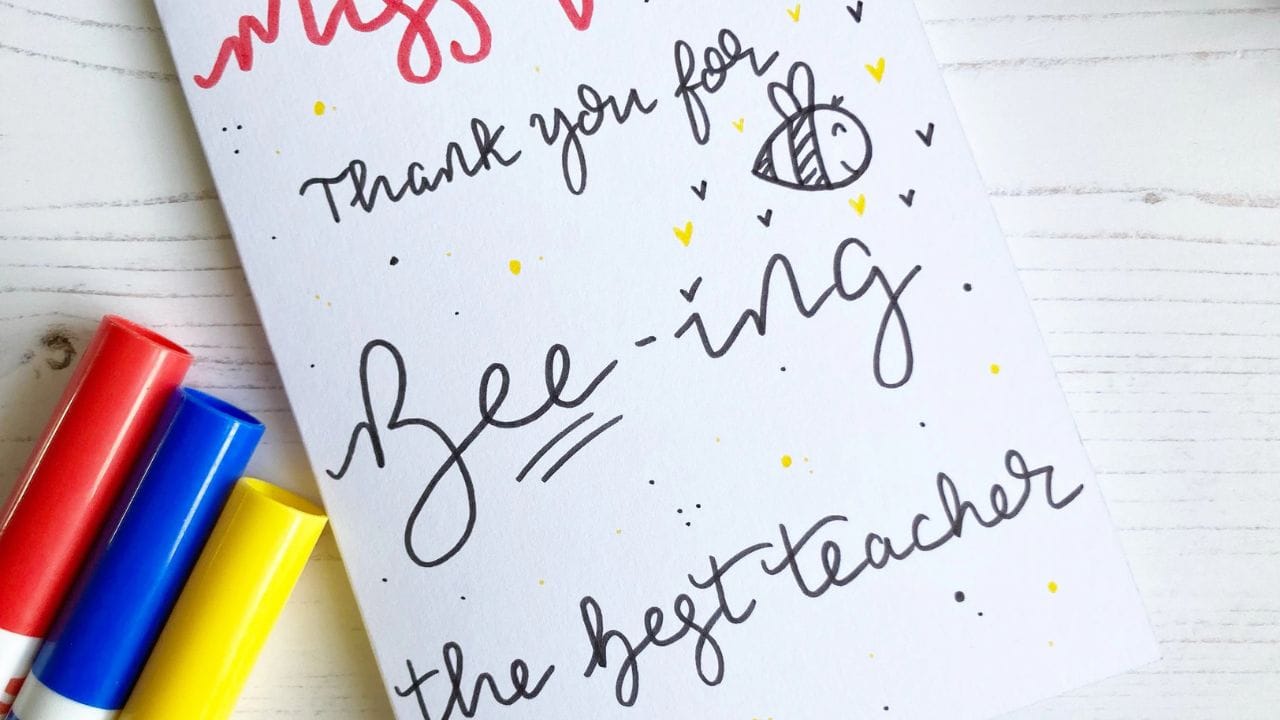 Miss
Thank you for
Bee-ing
the best teacher